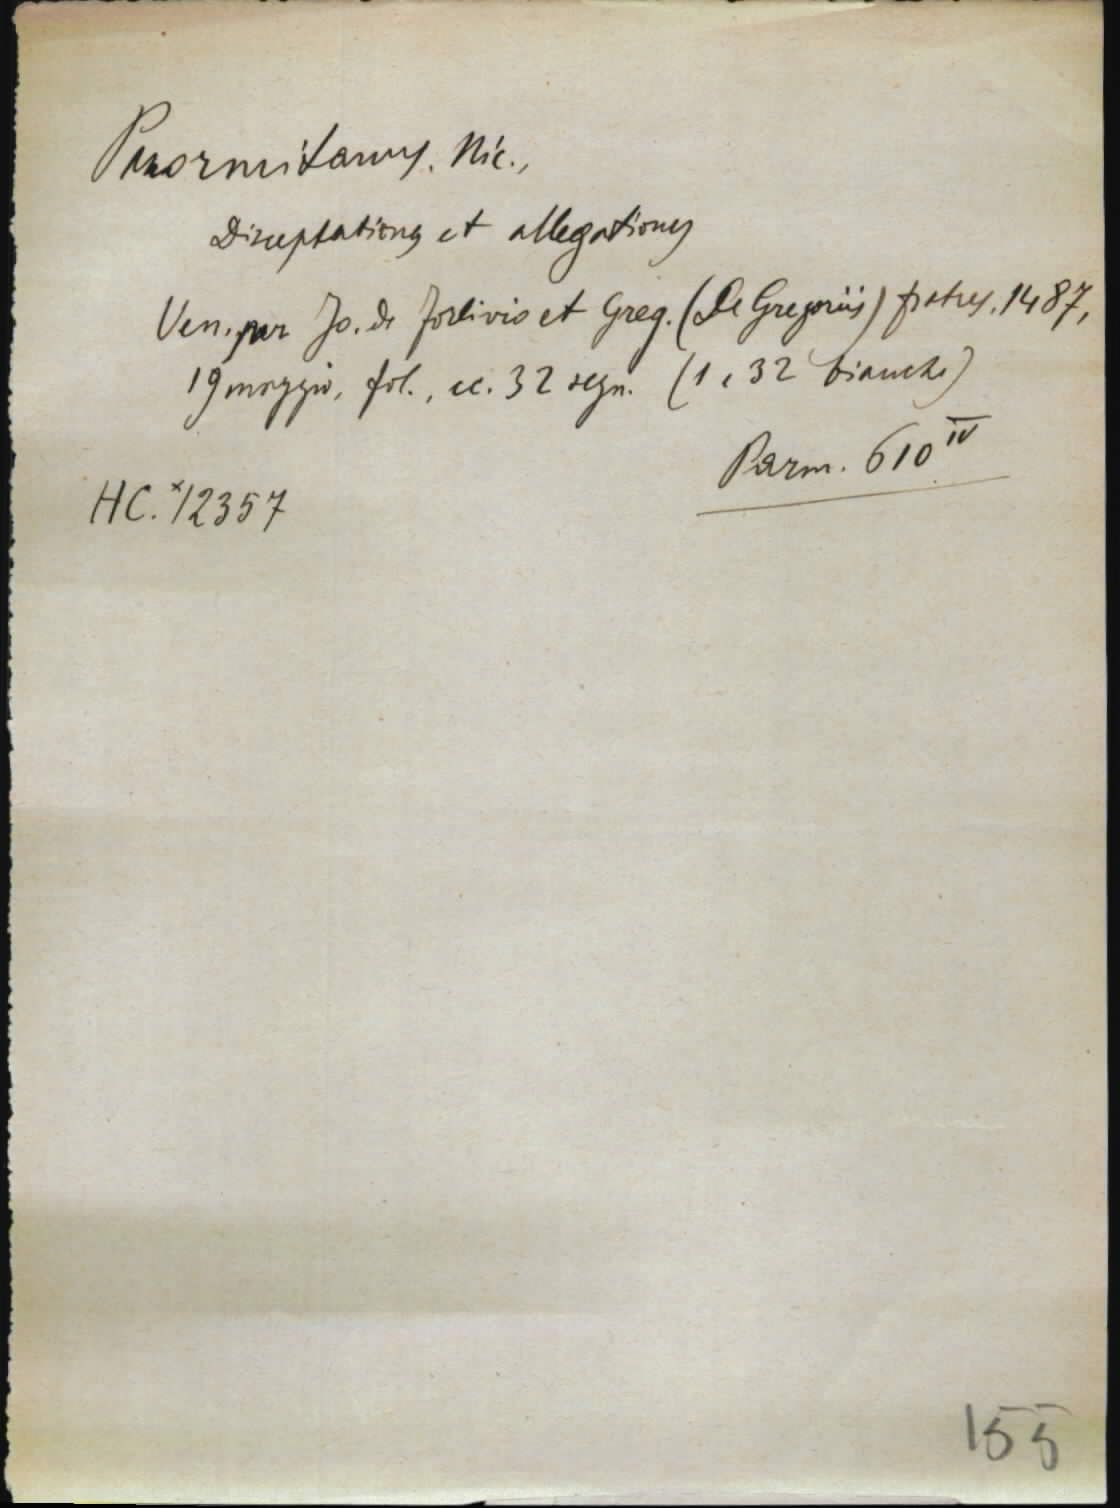 Panormitanus. Nic.,
Disceptationes et allegationes
Ven. per Jo. de Forlivio et Greg. (De Gregoriis) fratres. 1487,
19 maggio, fol., cc. 32 segn. (1 e 32 bianche)
Parm. 610 IV
HC. *12357
155